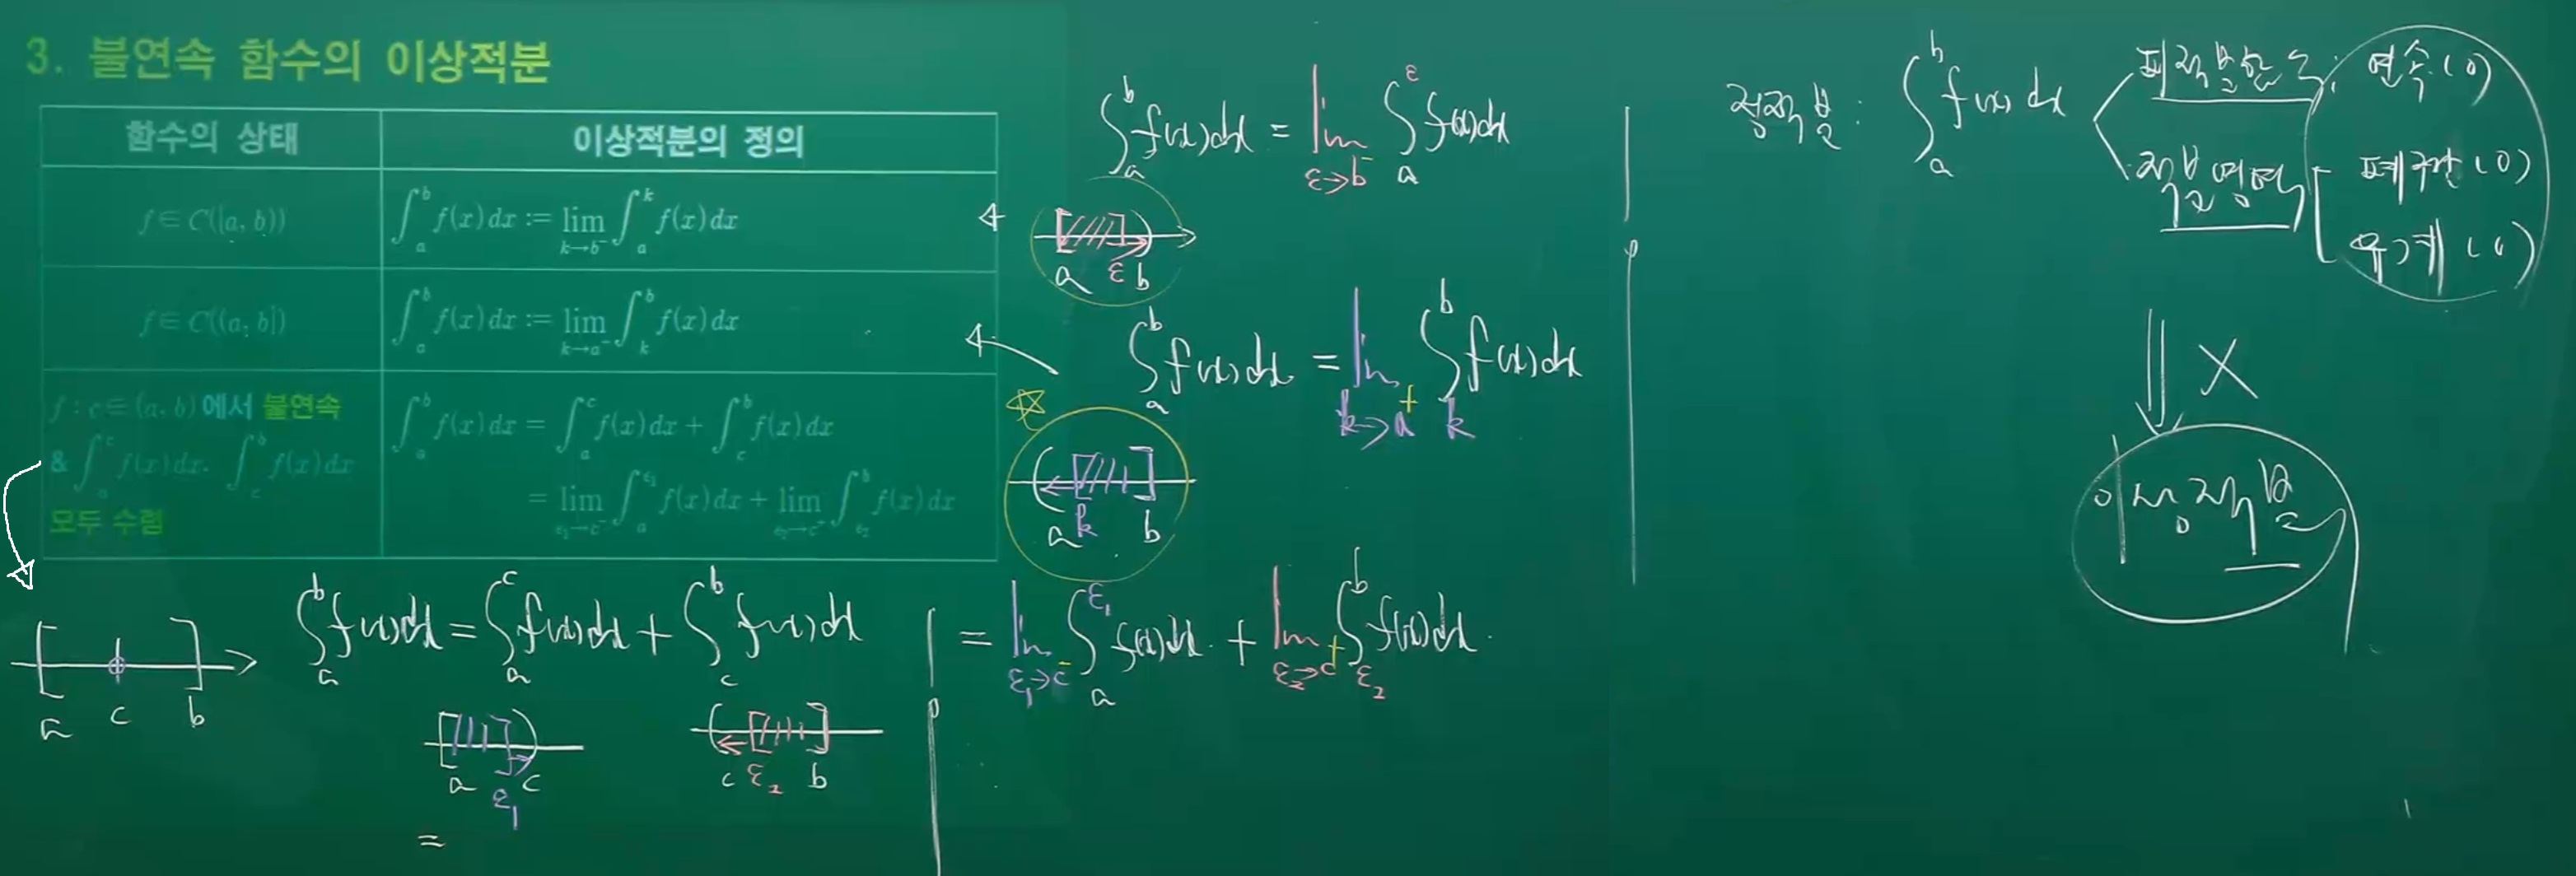 3. 불연속 함수의 이상적분
함수의 상태
이상적분의 정의
f∈C([a, b))
∫_a^b f(x)dx := lim_{k→b⁻} ∫_a^k f(x)dx
f∈C((a, b])
∫_a^b f(x)dx := lim_{k→a⁻} ∫_k^b f(x)dx
f : c∈(a, b)에서 불연속
& ∫_a^c f(x)dx, ∫_c^b f(x)dx
모두 수렴
∫_a^b f(x)dx = ∫_a^c f(x)dx + ∫_c^b f(x)dx
= lim_{ε₁→c⁻} ∫_a^{ε₁} f(x)dx + lim_{ε₂→c⁻} ∫_{ε₂}^b f(x)dx
∫_a^b f(x)dx = lim_{ε→b⁻} ∫_a^ε f(x)dx
a ε b
∫_a^b f(x)dx = lim_{k→a⁺} ∫_k^b f(x)dx
a k b
a c b
∫_a^b f(x)dx = ∫_a^c f(x)dx + ∫_c^b f(x)dx
a ε₁ c
c ε₂ b
=
= lim_{ε₁→c⁻} ∫_a^{ε₁} f(x)dx + lim_{ε₂→c⁺} ∫_{ε₂}^b f(x)dx
정적분 : ∫_a^b f(x)dx
피적분함수 : 연속(O)
적분영역
폐구간(O)
유계(O)
X
이상적분